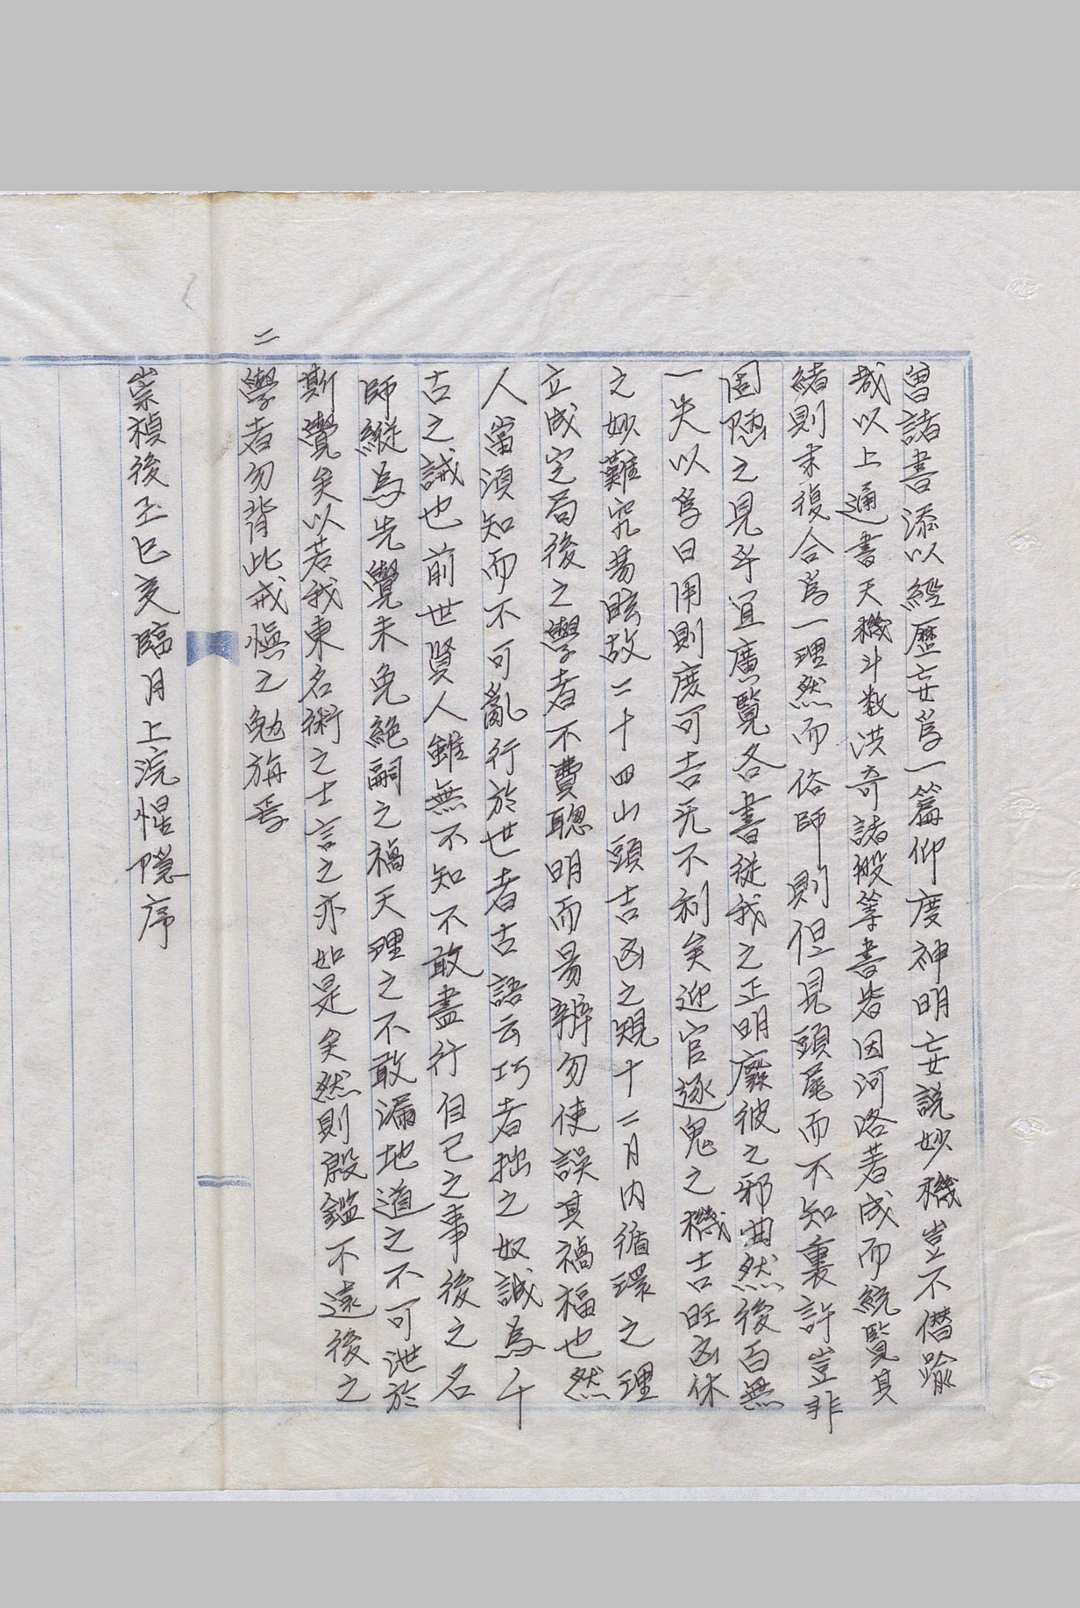 曾諸書添以經歷妄爲一篇仰度神明妄說妙機豈不僭踰
哉以上通書天機斗数洪奇諸般等書皆因河洛著成而統覽其
緖則末復合爲一理然而俗師則但見頭尾而不知裏許豈非
固陋之見乎宜廣覽各書從我之正明廢彼之邪曲然後百無
一失以爲日用則度可吉无不利矣迎官逐鬼之機吉旺凶休
之妙難究易眩故二十四山頭吉凶之規十二月內循環之理
立成定局後之學者不費聰明而易辨勿使誤其禍福也然
人當須知而不可亂行於世者古語云巧者拙之奴誠為千
古之誡也前世賢人雖無不知不敢盡行自已之事後之名
師縱為先覺未免絶嗣之禍天理之不敢漏地道之不可泄於
斯覺矣以若我東名術之士言之亦如是矣然則殷鑑不遠後之
學者勿背此戒愼之勉旃焉
二
崇禎後五巳亥臨月上浣惺隱序